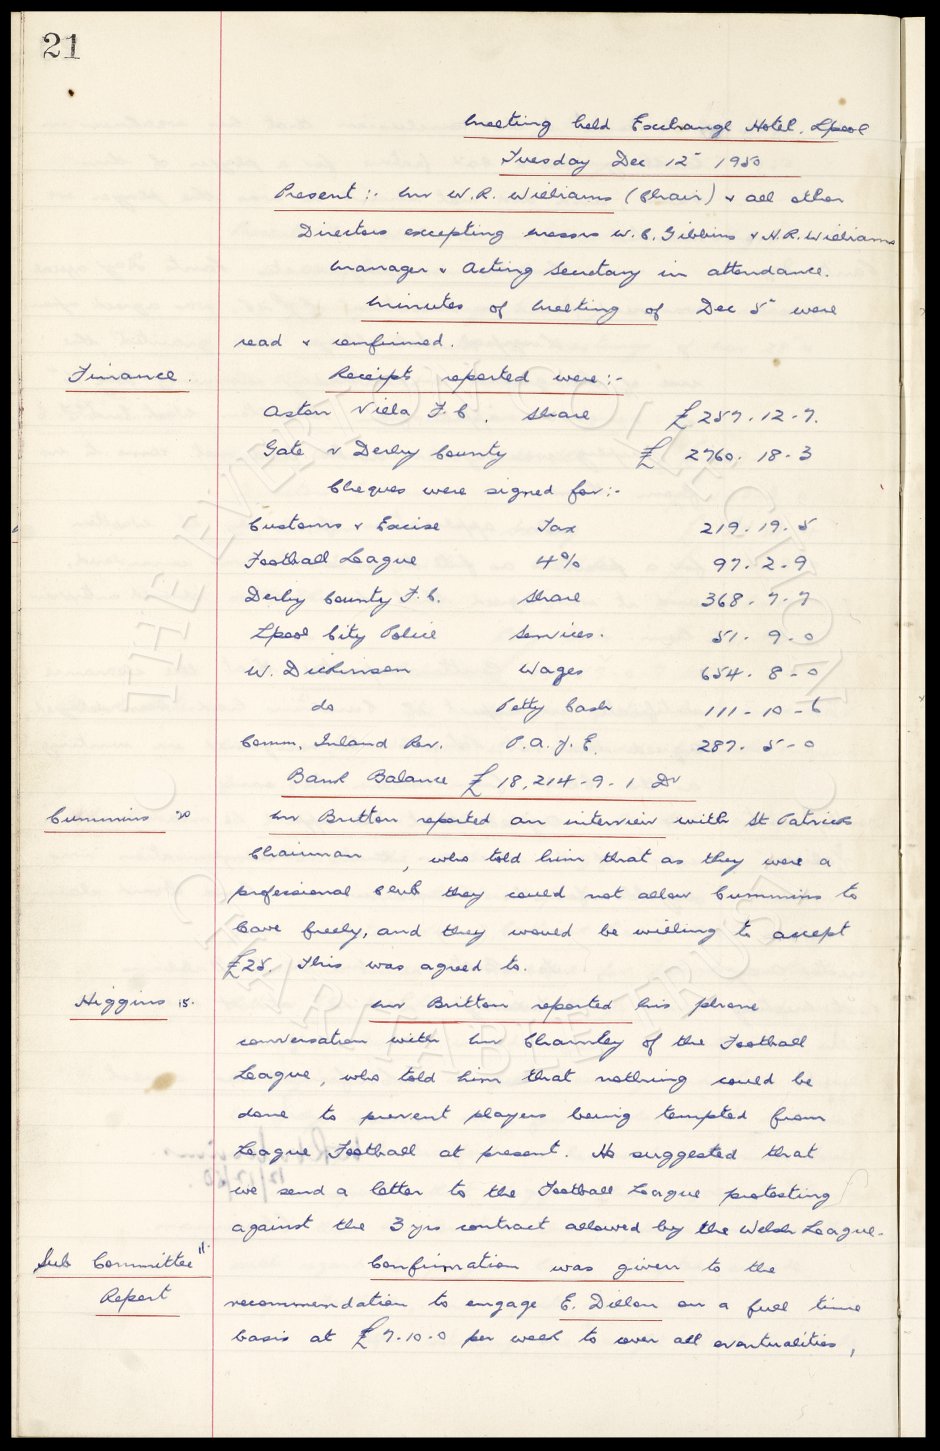 21
Meeting held Exchange Hotel, Lpool
Tuesday Dec 12th 1950
Present :- Mr W.R. Williams (Chair) & all other
Directors excepting Messrs W.C. Gibbins & H.R. Williams
Manager & Acting Secretary in attendance.
Minutes of Meeting of Dec 5th were
read & confirmed.
Finance. Receipts reported were :-
Aston Villa F.C. Share £257.12.7.
Gate v Derby County £ 2760.18.3
Cheques were signed for :-
Customs & Excise Tax 219.19.5
Football League 4% 97.2.9
Derby County F.C. Share 368.7.7
Lpool City Police Services. 51.9.0
W. Dickinson Wages 654.8-0
do Petty Cash 111-10-6
Comm. Inland Rev. P.A.Y.E. 287.5-0
Bank Balance £18,214-9-1 Dr
Cummins Mr Britton reported an interview with St Patricks
Chairman, who told him that as they were a
professional club they could not allow Cummins to
leave freely, and they would be willing to accept
£25. This was agreed to.
Higgins 15. Mr Britton reported his phone
conversation with Mr Charnley of the Football
League, who told him that nothing could be
done to prevent players being tempted from
League Football at present. He suggested that
we send a letter to the Football League protesting
against the 3 yrs contract allowed by the Welsh League.
Sub Committee 11. Confirmation was given to the
Report recommendation to engage E. Dillon on a full time
basis at £7.10.0 per week to cover all eventualities,
THE EVERTON COLLECTION
CHARITABLE TRUST